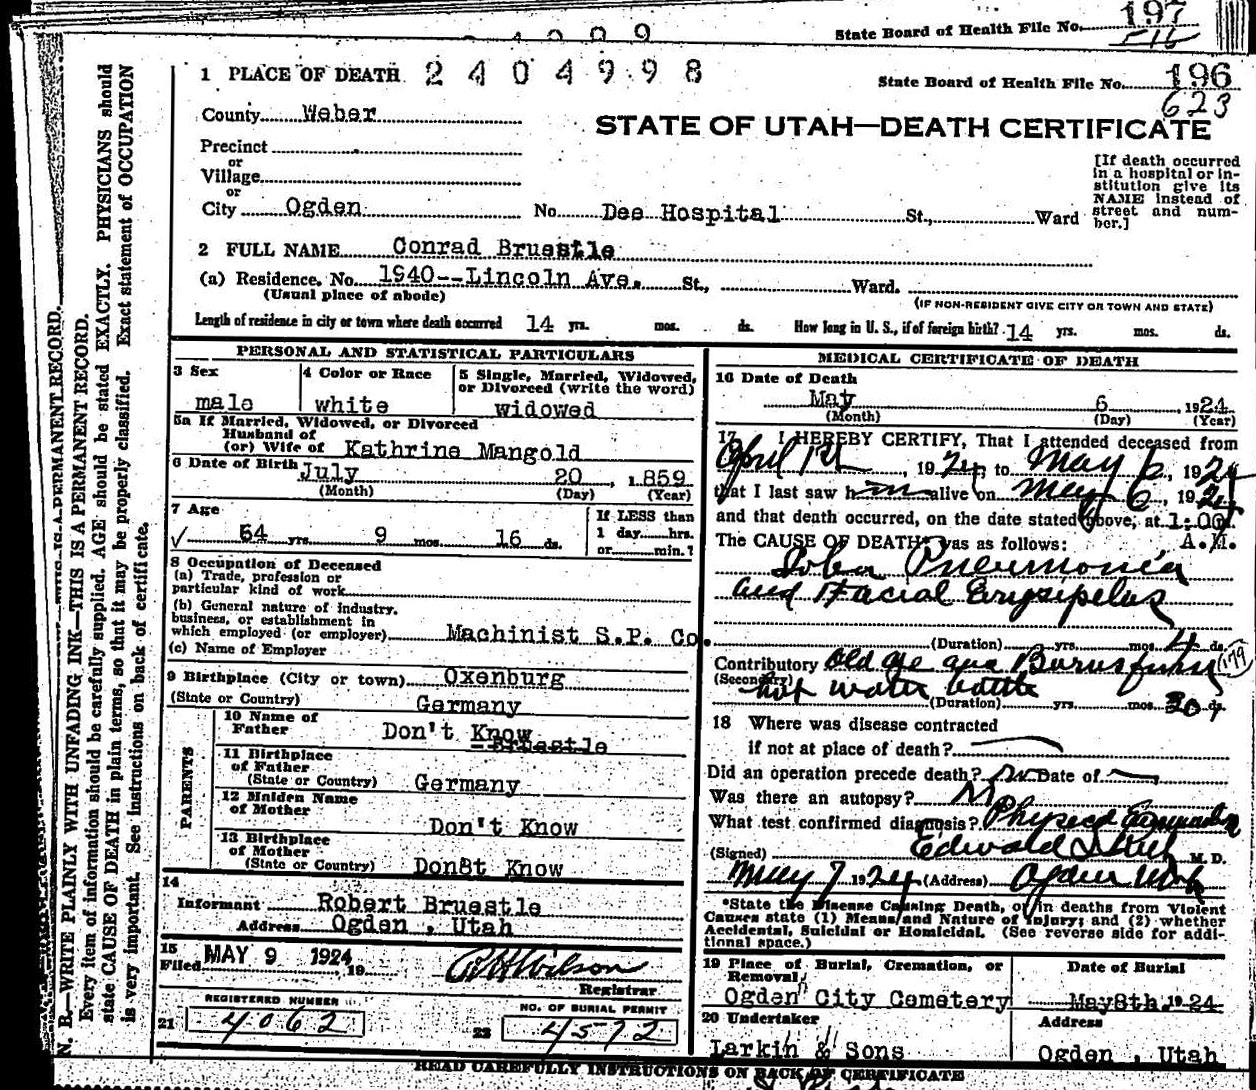 State Board of Health File No. 197
State Board of Health File No. 196
623
1 PLACE OF DEATH 2404998
County Weber
STATE OF UTAH—DEATH CERTIFICATE
Precinct
or
Village
or
City Ogden No. Dee Hospital St., Ward
[If death occurred in a hospital or in-
stitution give its
NAME instead of
street and num-
ber.]
2 FULL NAME Conrad Bruestle
(a) Residence. No. 1940--Lincoln Ave. St., Ward.
(Usual place of abode) (IF NON-RESIDENT GIVE CITY OR TOWN AND STATE)
Length of residence in city or town where death occurred 14 yrs. mos. ds. How long in U. S., if of foreign birth? 14 yrs. mos. ds.
PERSONAL AND STATISTICAL PARTICULARS
3 Sex male
4 Color or Race white
5 Single, Married, Widowed,
or Divorced (write the word)
widowed
5a If Married, Widowed, or Divorced
Husband of
(or) Wife of Kathrine Mangold
6 Date of Birth July 20, 1859
(Month) (Day) (Year)
7 Age
64 yrs. 9 mos. 16 ds.
If LESS than
1 day hrs.
or min.?
8 Occupation of Deceased
(a) Trade, profession or
particular kind of work
(b) General nature of industry,
business, or establishment in
which employed (or employer) Machinist S.P. Co.
(c) Name of Employer
9 Birthplace (City or town) Oxenburg
(State or Country) Germany
PARENTS
10 Name of
Father Don't Know
--Bruestle
11 Birthplace
of Father
(State or Country) Germany
12 Maiden Name
of Mother Don't Know
13 Birthplace
of Mother
(State or Country) Don8t Know
14
Informant Robert Bruestle
Address Ogden , Utah
15
Filed MAY 9 1924, 19
R H Wilson
Registrar
REGISTERED NUMBER
21 4062
NO. OF BURIAL PERMIT
22 4572
MEDICAL CERTIFICATE OF DEATH
16 Date of Death
May 6, 1924
(Month) (Day) (Year)
17 I HEREBY CERTIFY, That I attended deceased from
April 1st, 1924, to May 6, 1924
that I last saw him alive on May 6, 1924
and that death occurred, on the date stated above, at 1:00
A.M.
The CAUSE OF DEATH* was as follows:
Lobar Pneumonia
and Facial Erysipelas
(Duration) yrs. mos. 4 ds.
Contributory Old age and Burns from
(Secondary) hot water bottle
179
(Duration) yrs. mos. 30 ds.
18 Where was disease contracted
if not at place of death?
Did an operation precede death? no Date of
Was there an autopsy? No
What test confirmed diagnosis? Physical Examination
(Signed) M. D.
May 7, 1924 (Address) Ogden Utah
*State the Disease Causing Death, or in deaths from Violent
Causes state (1) Means and Nature of Injury; and (2) whether
Accidental, Suicidal or Homicidal. (See reverse side for addi-
tional space.)
19 Place of Burial, Cremation, or
Removal
Ogden City Cemetery
Date of Burial
May 8th. 1924
20 Undertaker
Larkin & Sons
Address
Ogden , Utah
READ CAREFULLY INSTRUCTIONS ON BACK OF CERTIFICATE
N. B.—WRITE PLAINLY WITH UNFADING INK—THIS IS A PERMANENT RECORD.
Every item of information should be carefully supplied. AGE should be stated EXACTLY. PHYSICIANS should
state CAUSE OF DEATH in plain terms, so that it may be properly classified. Exact statement of OCCUPATION
is very important. See instructions on back of certificate.